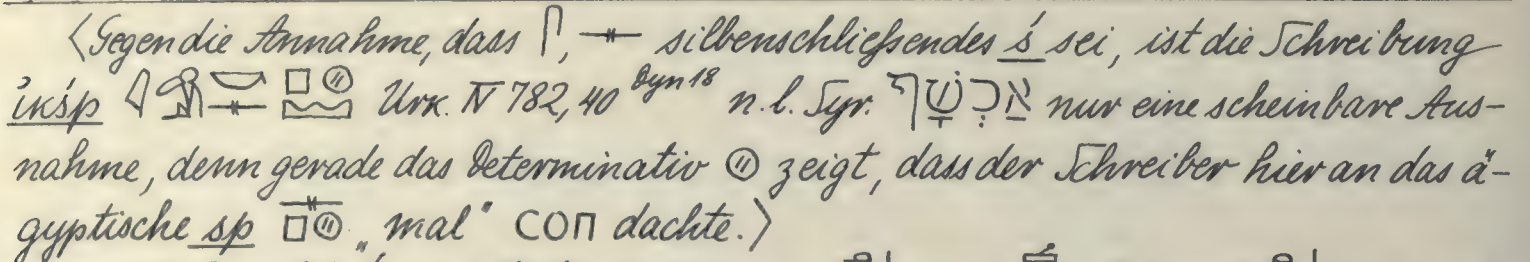 〈Gegen die Annahme, dass 𓋴, 𓊃 silbenschließendes ś sei, ist die Schreibung
i҆kśp 𓇋𓀁𓎡𓊃 𓊪𓊗𓈇 Urk. IV 782, 40 Dyn 18 n. l. Syr. אֲכְשָׁף nur eine scheinbare Aus-
nahme, denn gerade das Determinativ 𓊗 zeigt, dass der Schreiber hier an das ä-
gyptische sp 𓊃𓊪𓊗 „mal“ ⲥⲟⲡ dachte.〉